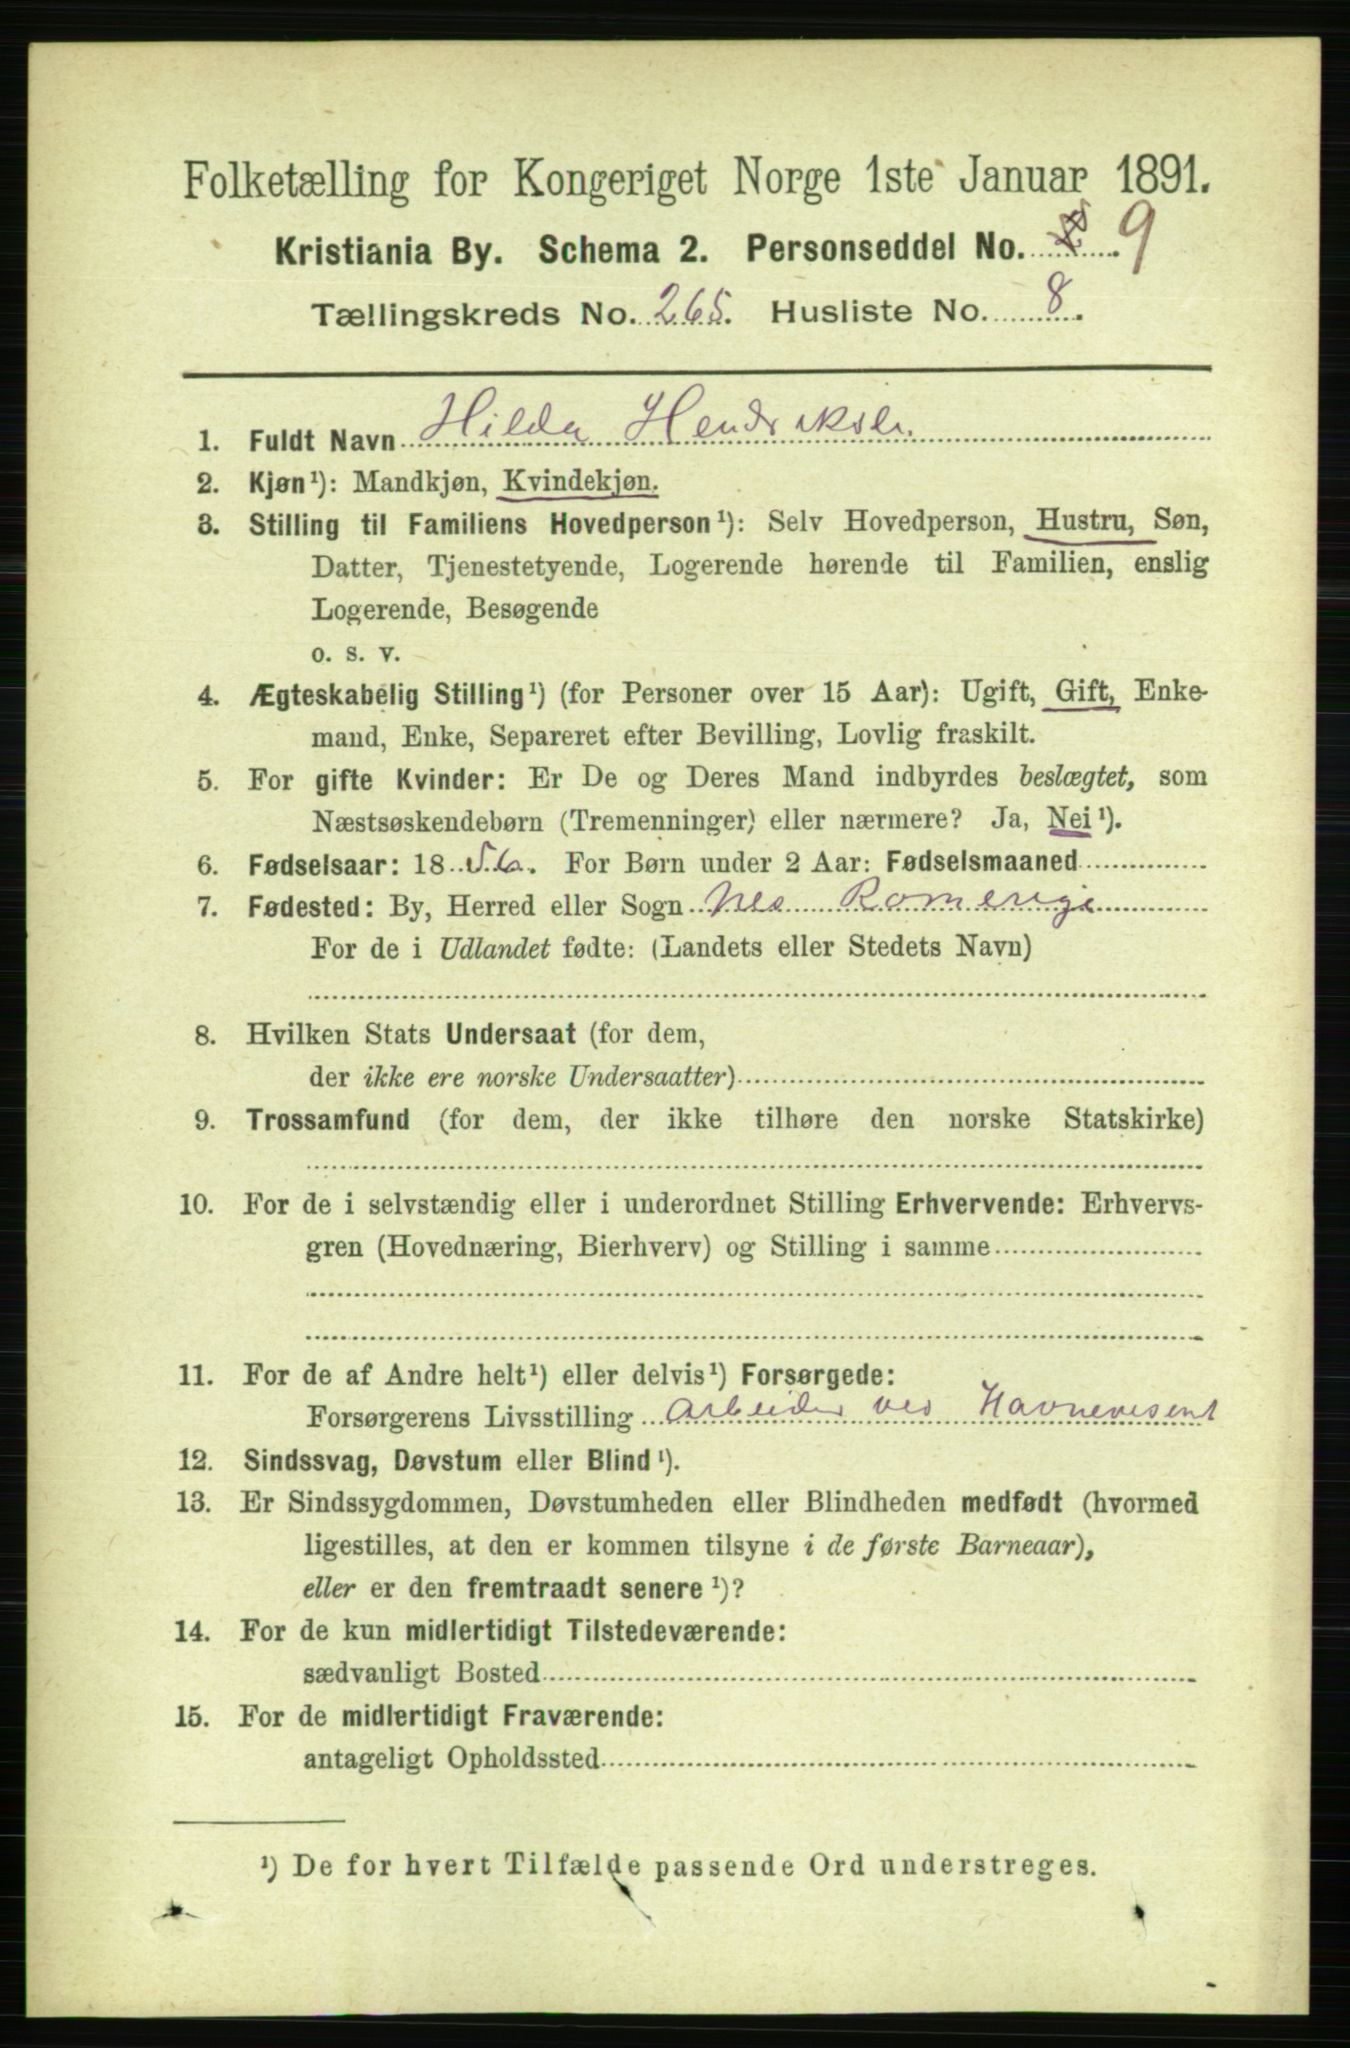 Folketælling for Kongeriget Norge 1ste Januar 1891.
Kristiania By. Schema 2. Personseddel No. 9
Tællingskreds No. 265. Husliste No. 8.
1. Fuldt Navn Hilda Hendriksen
2. Kjøn¹): Mandkjøn, Kvindekjøn.
3. Stilling til Familiens Hovedperson¹): Selv Hovedperson, Hustru, Søn,
Datter, Tjenestetyende, Logerende hørende til Familien, enslig
Logerende, Besøgende
o. s. v.
4. Ægteskabelig Stilling¹) (for Personer over 15 Aar): Ugift, Gift, Enke-
mand, Enke, Separeret efter Bevilling, Lovlig fraskilt.
5. For gifte Kvinder: Er De og Deres Mand indbyrdes beslægtet, som
Næstsøskendebørn (Tremenninger) eller nærmere? Ja, Nei¹).
6. Fødselsaar: 1856. For Børn under 2 Aar: Fødselsmaaned
7. Fødested: By, Herred eller Sogn Nes Romerige
For de i Udlandet fødte: (Landets eller Stedets Navn)
8. Hvilken Stats Undersaat (for dem,
der ikke ere norske Undersaatter)
9. Trossamfund (for dem, der ikke tilhøre den norske Statskirke)
10. For de i selvstændig eller i underordnet Stilling Erhvervende: Erhvervs-
gren (Hovednæring, Bierhverv) og Stilling i samme
11. For de af Andre helt¹) eller delvis¹) Forsørgede:
Forsørgerens Livsstilling Arbeider ved Havnevesent
12. Sindssvag, Døvstum eller Blind¹).
13. Er Sindssygdommen, Døvstumheden eller Blindheden medfødt (hvormed
ligestilles, at den er kommen tilsyne i de første Barneaar),
eller er den fremtraadt senere¹)?
14. For de kun midlertidigt Tilstedeværende:
sædvanligt Bosted
15. For de midlertidigt Fraværende:
antageligt Opholdssted
¹) De for hvert Tilfælde passende Ord understreges.